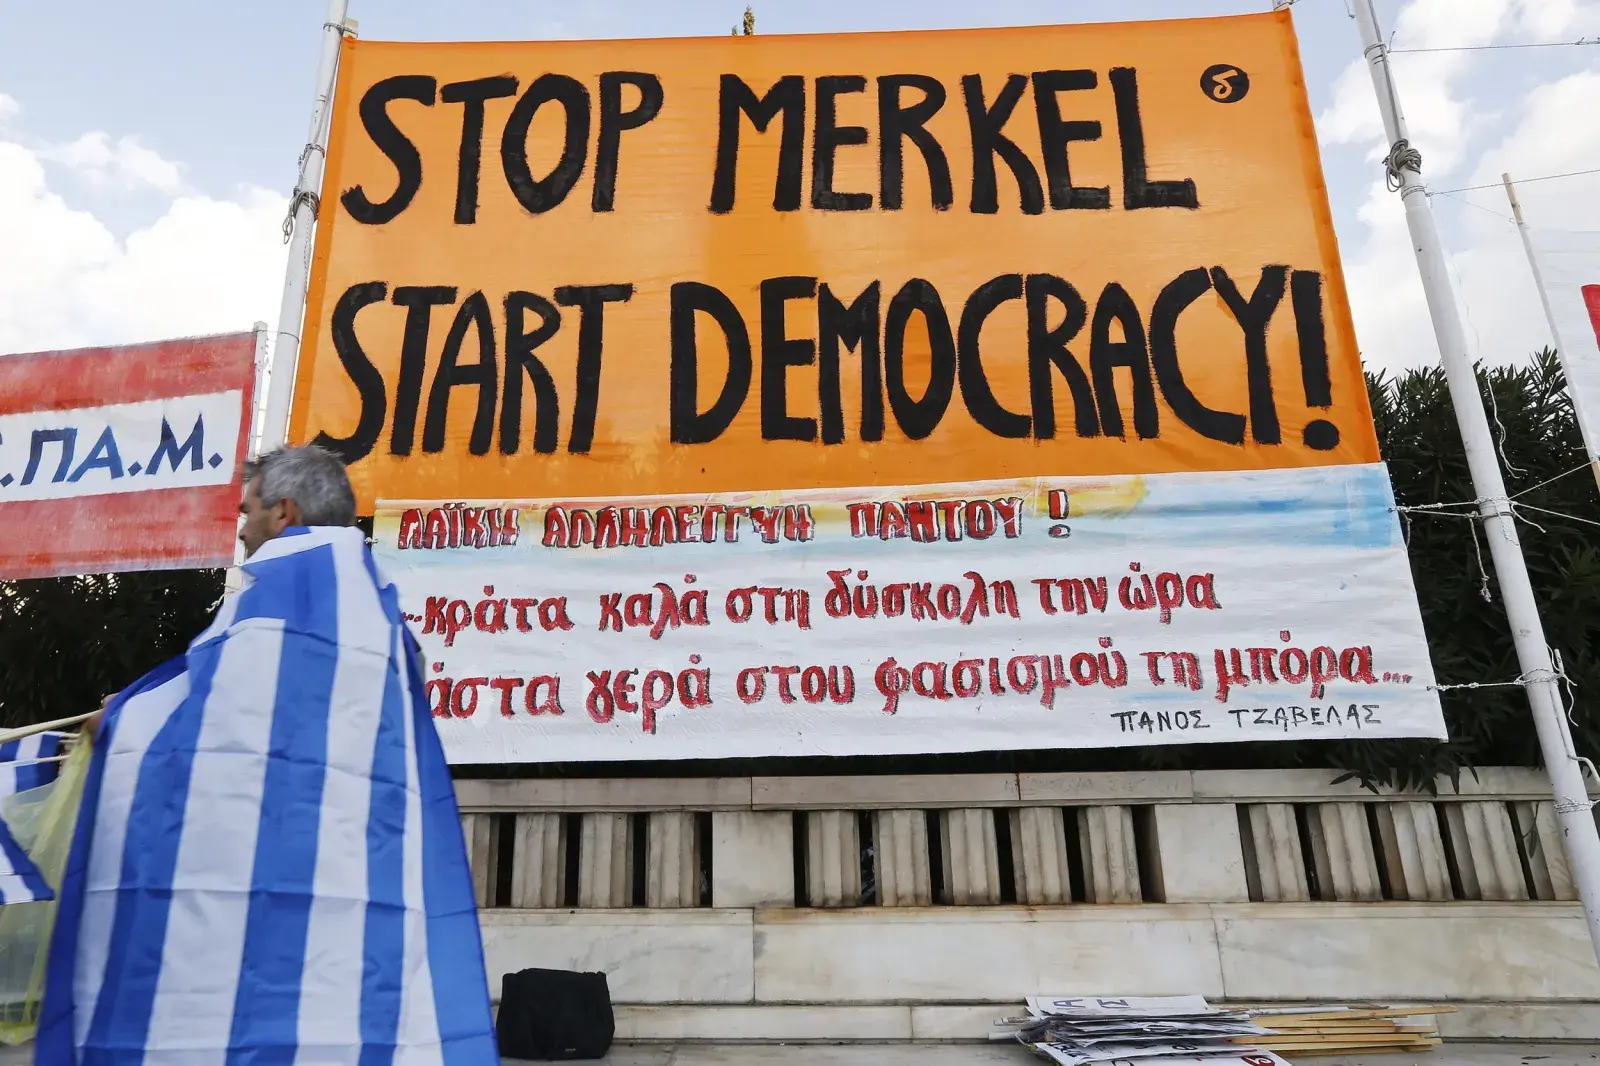 STOP MERKEL δ
START DEMOCRACY!
.ΠΑ.Μ.
ΛΑΪΚΗ ΑΛΛΗΛΕΓΓΥΗ ΠΑΝΤΟΥ!
..κράτα καλά στη δύσκολη την ώρα
άστα γερά στου φασισμού τη μπόρα...
ΠΑΝΟΣ ΤΖΑΒΕΛΑΣ